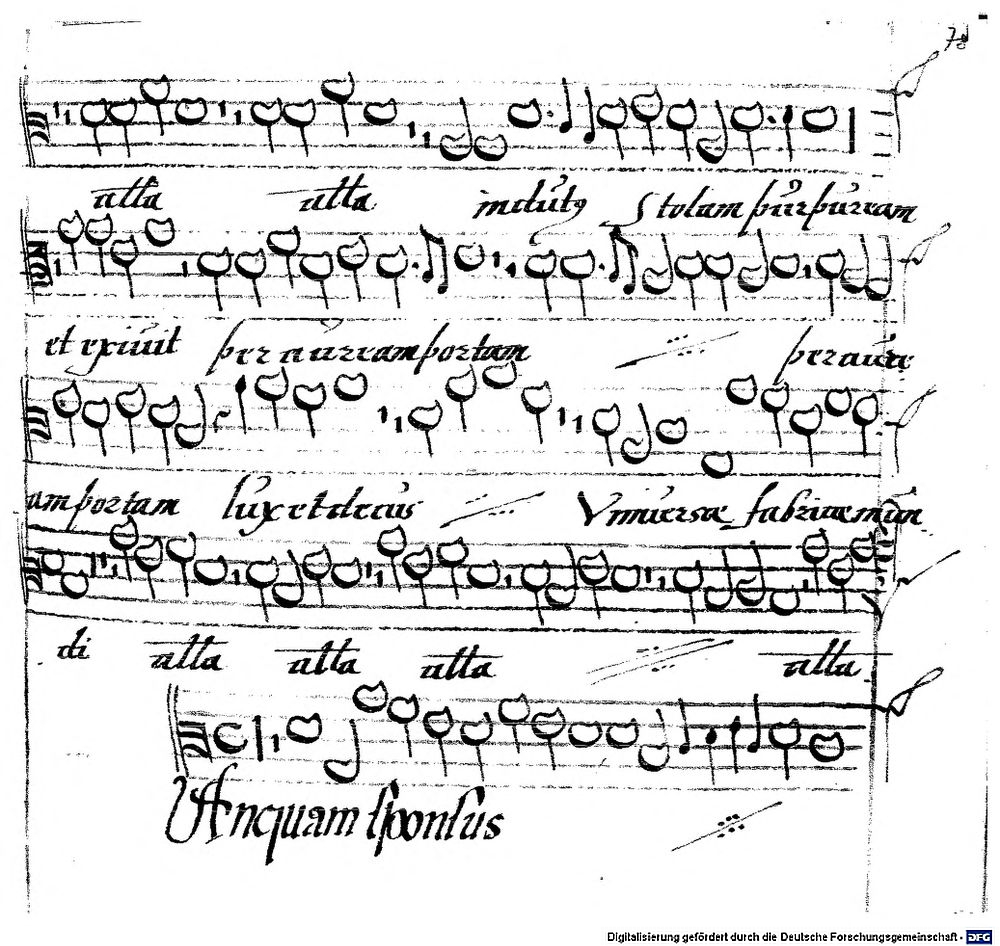 78
alla alla indutꝯ Stolam purpuream
et exiuit per auream portam per aure
am portam lux et decus Vniuersæ fabricæ mun
di alla alla alla alla
Tanquam sponsus
Digitalisierung gefördert durch die Deutsche Forschungsgemeinschaft - DFG